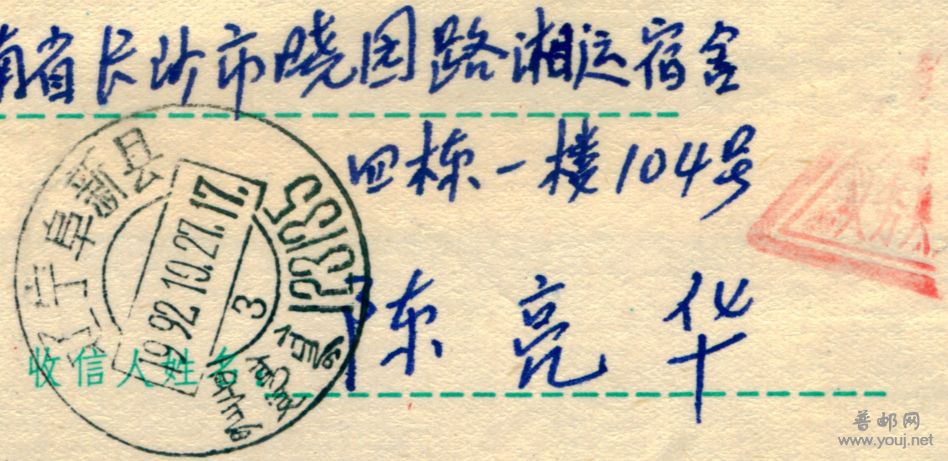 南省长沙市晓园路湘运宿舍
四栋一楼104号
辽宁阜新县
1992.10.27.17.
3
12315
陈亮华
收信人姓名
普邮网
www.youj.net